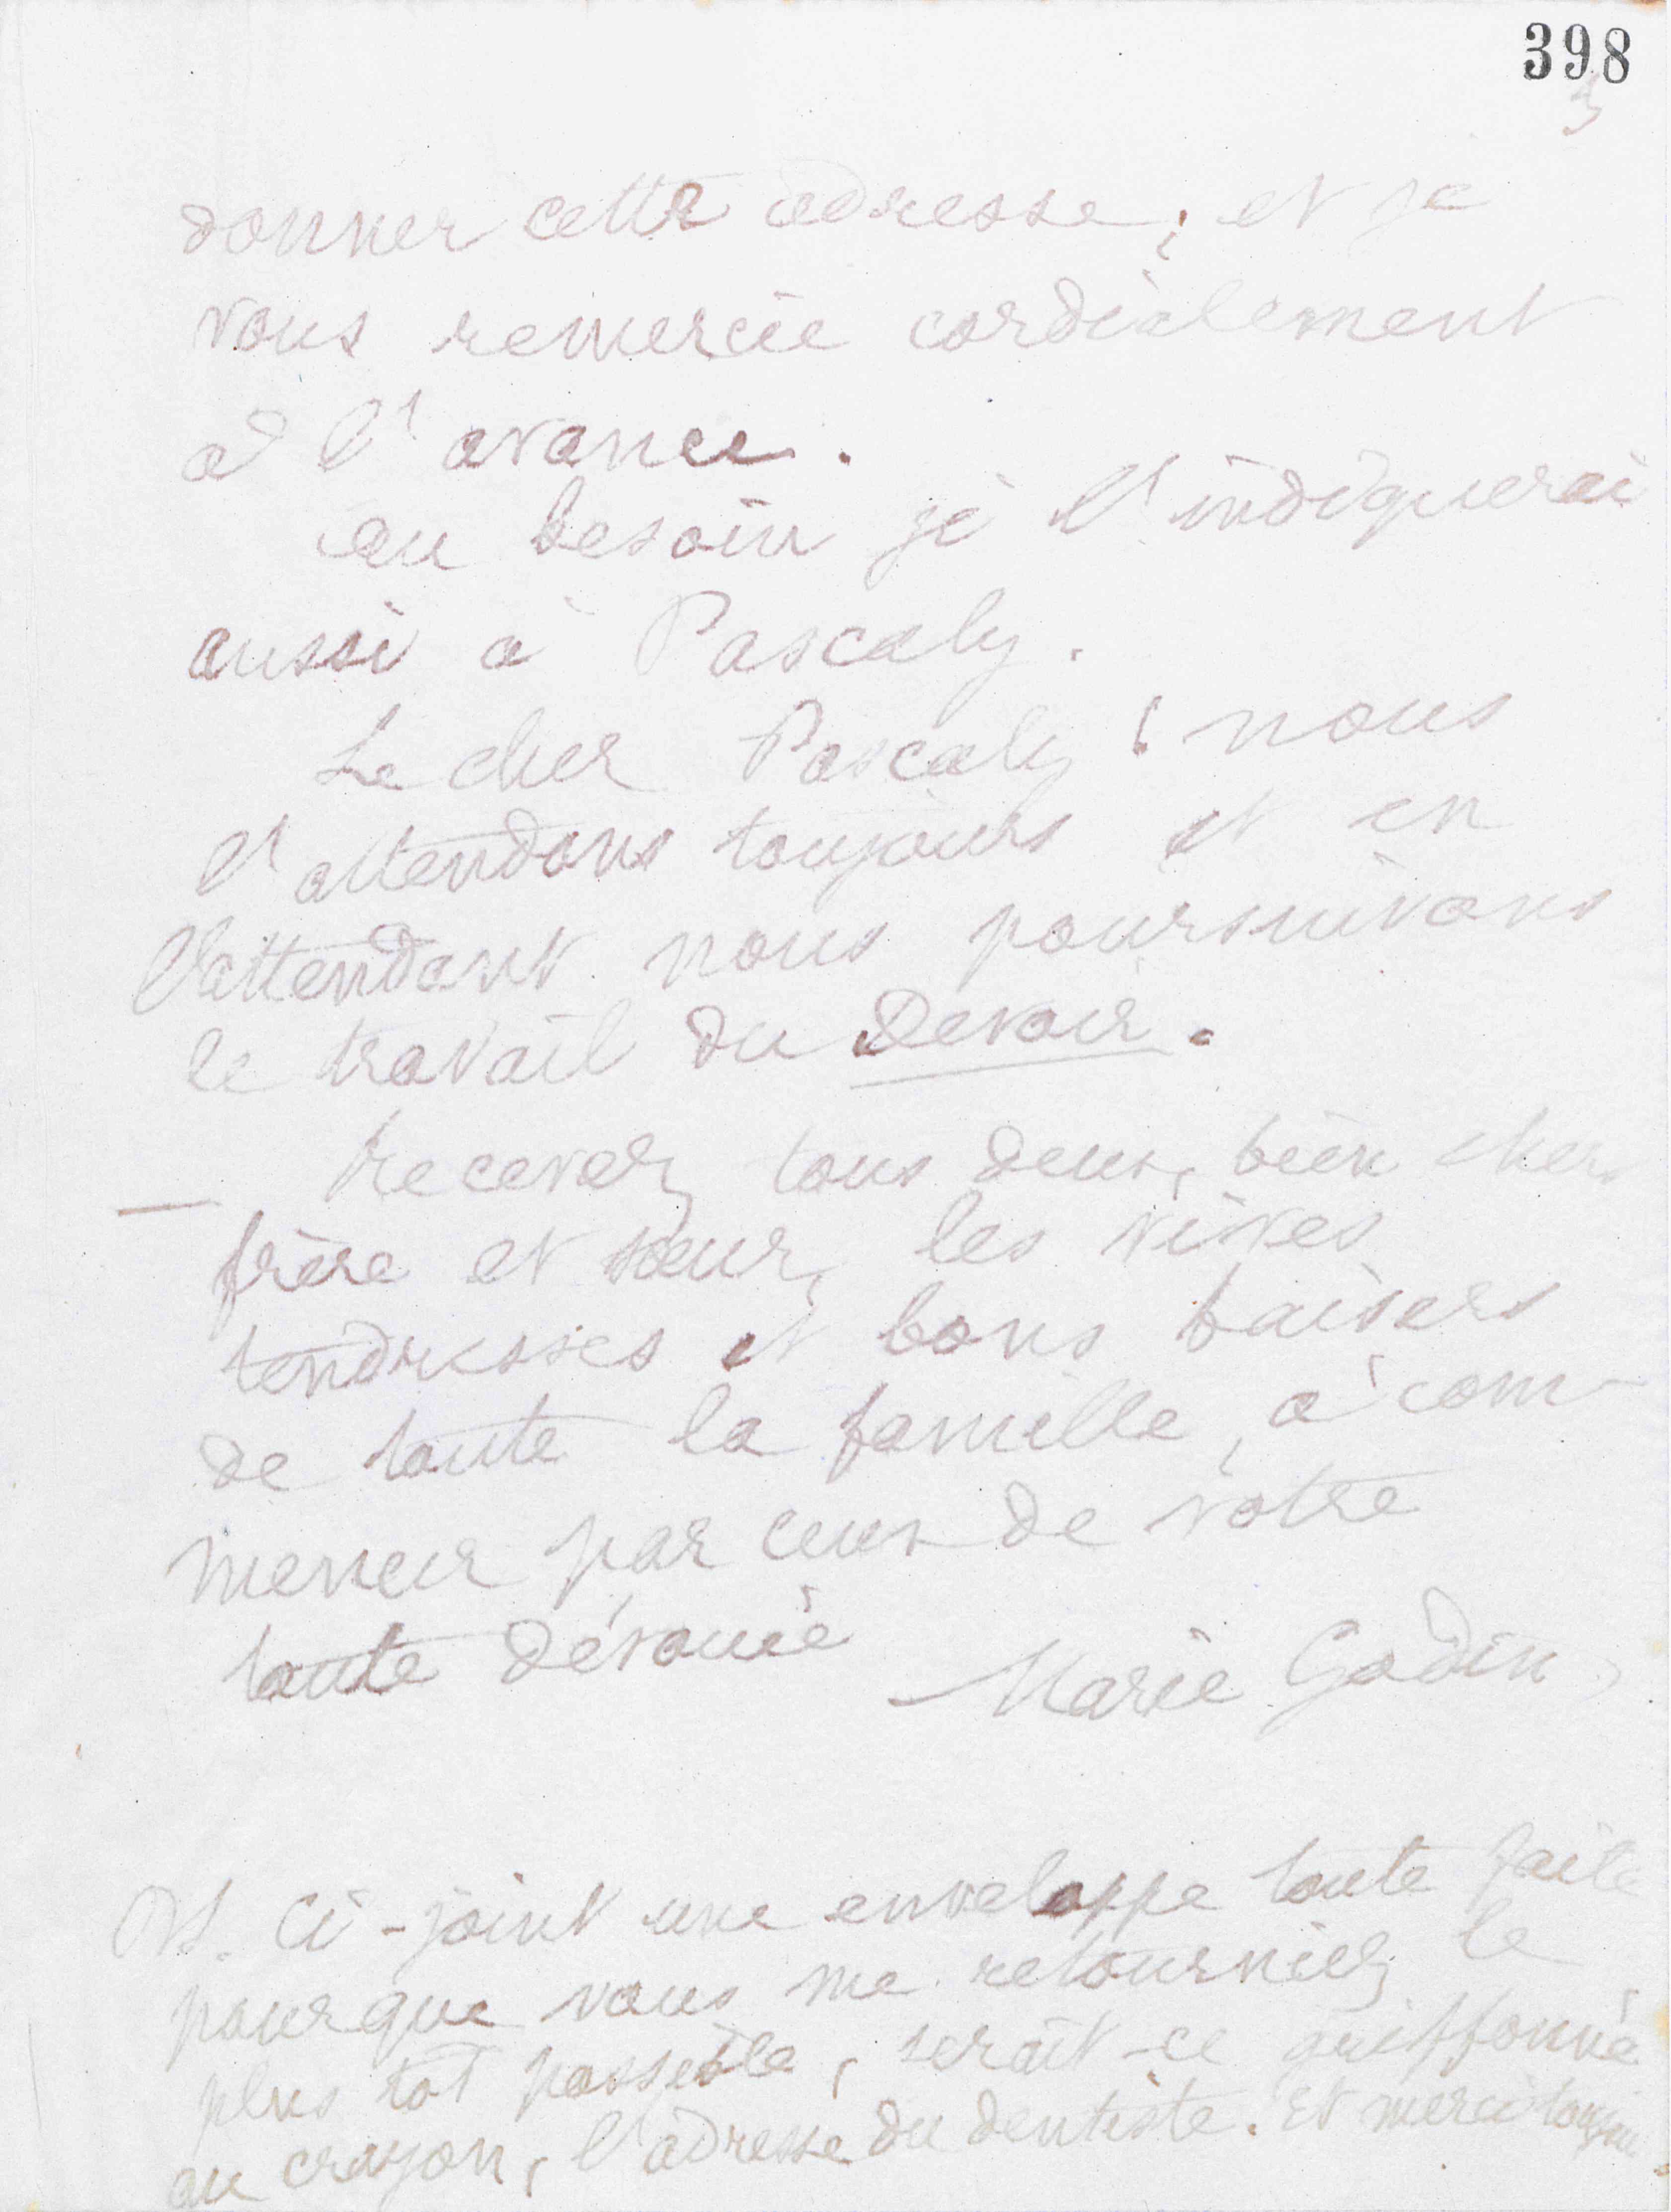 398
3
donner cette adresse, et je
vous remercie cordialement
à l'avance.
Au besoin je l'indiquerai
aussi à Pascaly.
Le cher Pascaly ! nous
l'attendons toujours et en
l'attendant nous poursuivons
le travail du Devoir.
— Recevez tous deux, bien chers
frère et sœur, les vives
tendresses et bons baisers
de toute la famille, à com-
mencer par ceux de votre
toute dévouée
Marie Godin
PS. Ci-joint une enveloppe toute faite
pour que vous me retourniez le
plus tôt possible, serait-ce griffonné
au crayon, l'adresse du dentiste. Et merci toujours